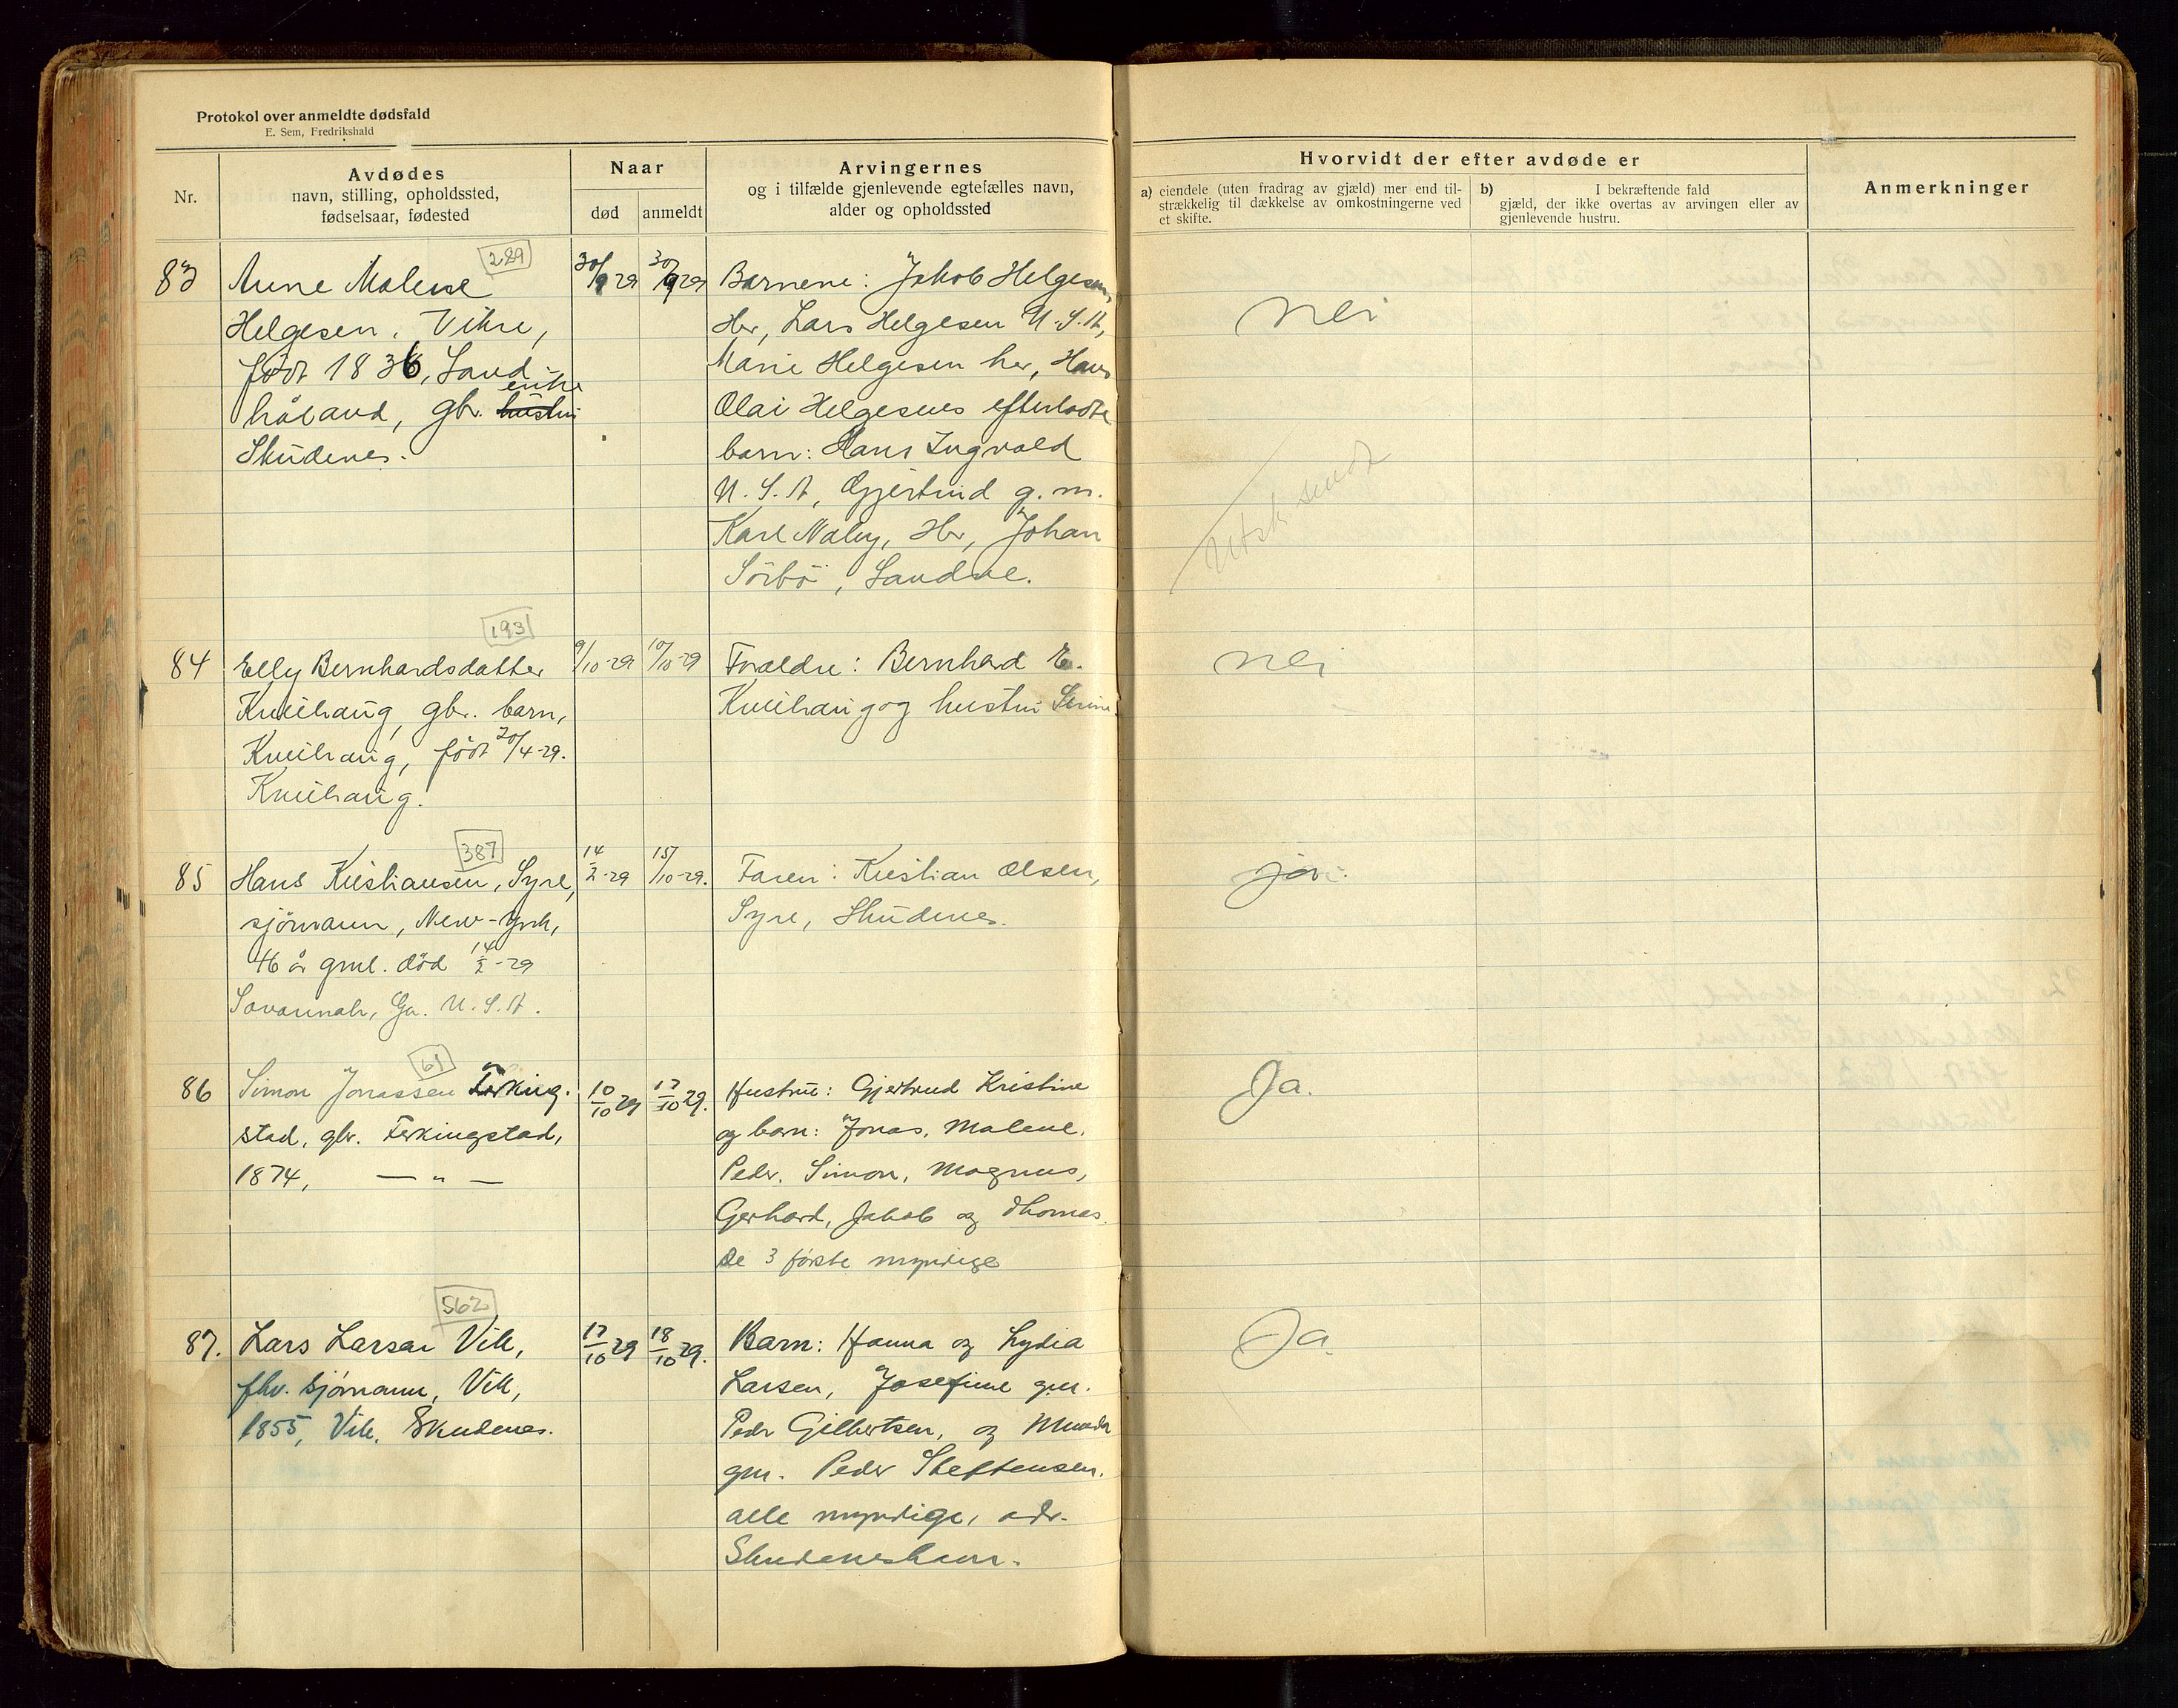 Protokol over anmeldte dødsfald
E. Sem, Fredrikshald
Nr.
Avdødes
navn, stilling, opholdssted,
fødselsaar, fødested
Naar
død
anmeldt
Arvingernes
og i tilfælde gjenlevende egtefælles navn,
alder og opholdssted
Hvorvidt der efter avdøde er
a) eiendele (uten fradrag av gjæld) mer end til-
strækkelig til dækkelse av omkostningerne ved
et skifte.
b) I bekræftende fald
gjæld, der ikke overtas av arvingen eller av
gjenlevende hustru.
Anmerkninger
289
83 Anne Malene
Helgesen, Vikre,
født 1836, Sand-
enke
håland, gbr. hustru
Skudenes.
30/9 29
30/9 29
Barnene: Jakob Helgesen,
Her, Lars Helgesen U.S.A,
Marie Helgesen her, Hans
Olai Helgesens efterladte
barn: Hans Ingvald
U.S.A, Gjertrud g.m.
Karl Naley, Her, Johan
Sörbö, Sandve.
nei
Utsk sendt
193
84 Elly Bernhardsdatter
Kneihaug, gbr. barn,
Kneihaug, født 20/4-29.
Kneihaug.
9/10-29
10/10-29
Forældre: Bernhard E.
Kneihaug og hustru Serine
nei
387
85 Hans Kristiansen, Syre,
sjömann, New-York,
46 år gml. död 14/2-29
Savannah, Ga. U.S.A.
14/2-29
15/10-29.
Faren: Kristian Olsen,
Syre, Skudenes.
ja.
61
86 Simon Jonassen Ferking-
stad, gbr. Ferkingstad,
1874, — " —
10/10 29
17/10 29.
Hustru: Gjertrud Kristine
og barn: Jonas, Malene,
Peder, Simon, Magnus,
Gerhard, Jakob og Thomas.
De 3 første myndige
Ja.
562
87. Lars Larsen Vik,
fhv. sjömann, Vik,
1855, Vik, Skudenes.
17/10 29
18/10 29.
Barn: Hanna og Lydia
Larsen, Josefine gm.
Peder Gilbertsen, og
gm. Peder Steffensen.
alle myndige, adr.
Skudeneshavn.
Ja.